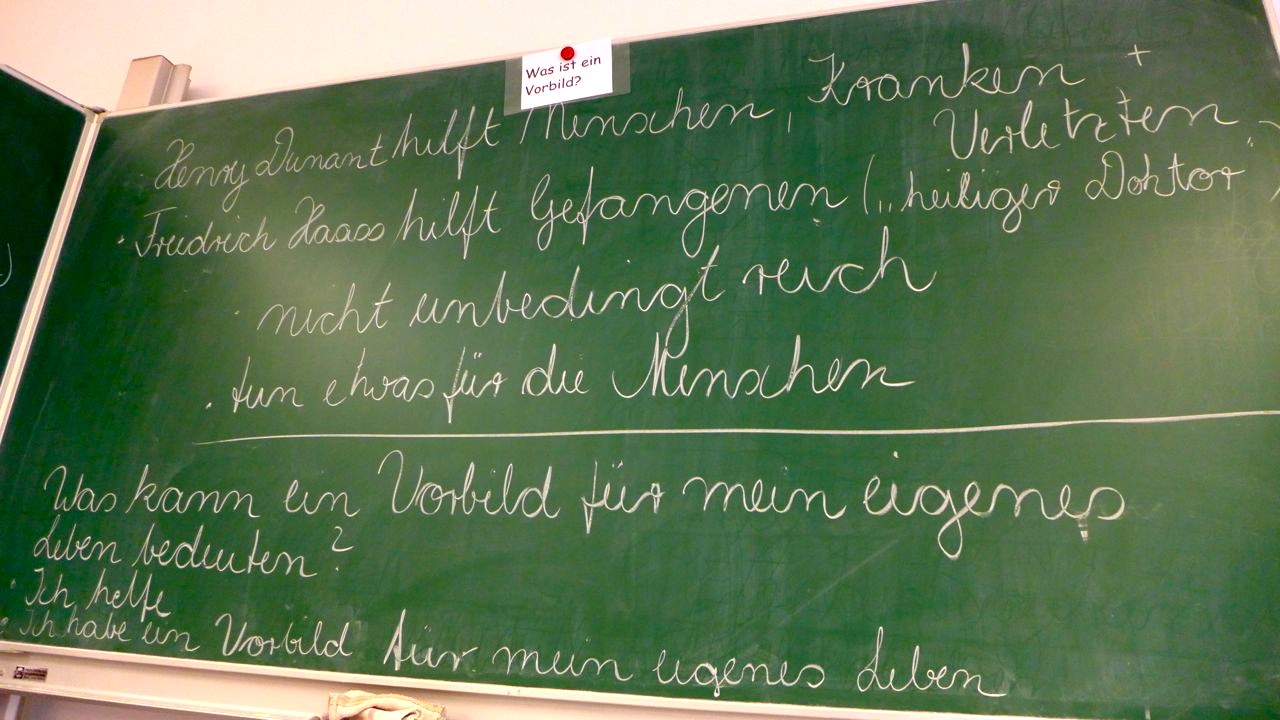 Was ist ein
Vorbild?
Henry Dunant hilft Menschen, Kranken +
Verletzten
· Friedrich Haass hilft Gefangenen („heiliger Doktor")
· nicht unbedingt reich
· tun etwas für die Menschen
Was kann ein Vorbild für mein eigenes
Leben bedeuten?
· Ich helfe
· Ich habe ein Vorbild für mein eigenes Leben